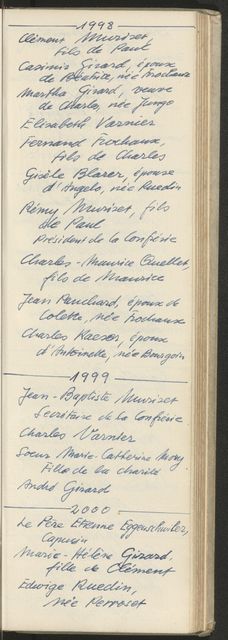 1998
Clément Muriset,
fils de Paul
Casimir Girard, époux
de Béatrice, née Frochaux
Martha Girard, veuve
de Charles, née Junge
Elisabeth Varnier
Fernand Frochaux,
fils de Charles
Gisèle Blaser, épouse
d'Angelo, née Ruedin
Rémy Muriset, fils
de Paul
Président de la Confrérie
Charles-Maurice Quellet,
fils de Maurice
Jean Ruchard, époux de
Colette, née Frochaux
Charles Kaeser, époux
d'Antoinette, née Bourgoin
1999
Jean-Baptiste Muriset
Secrétaire de la Confrérie
Charles Varnier
Soeur Marie-Catherine
Fille de la charité
André Girard
2000
Le Père Etienne Eggenschwiler,
Capucin
Marie-Hélène Girard,
fille de Clément
Edwige Ruedin,
née Perroset